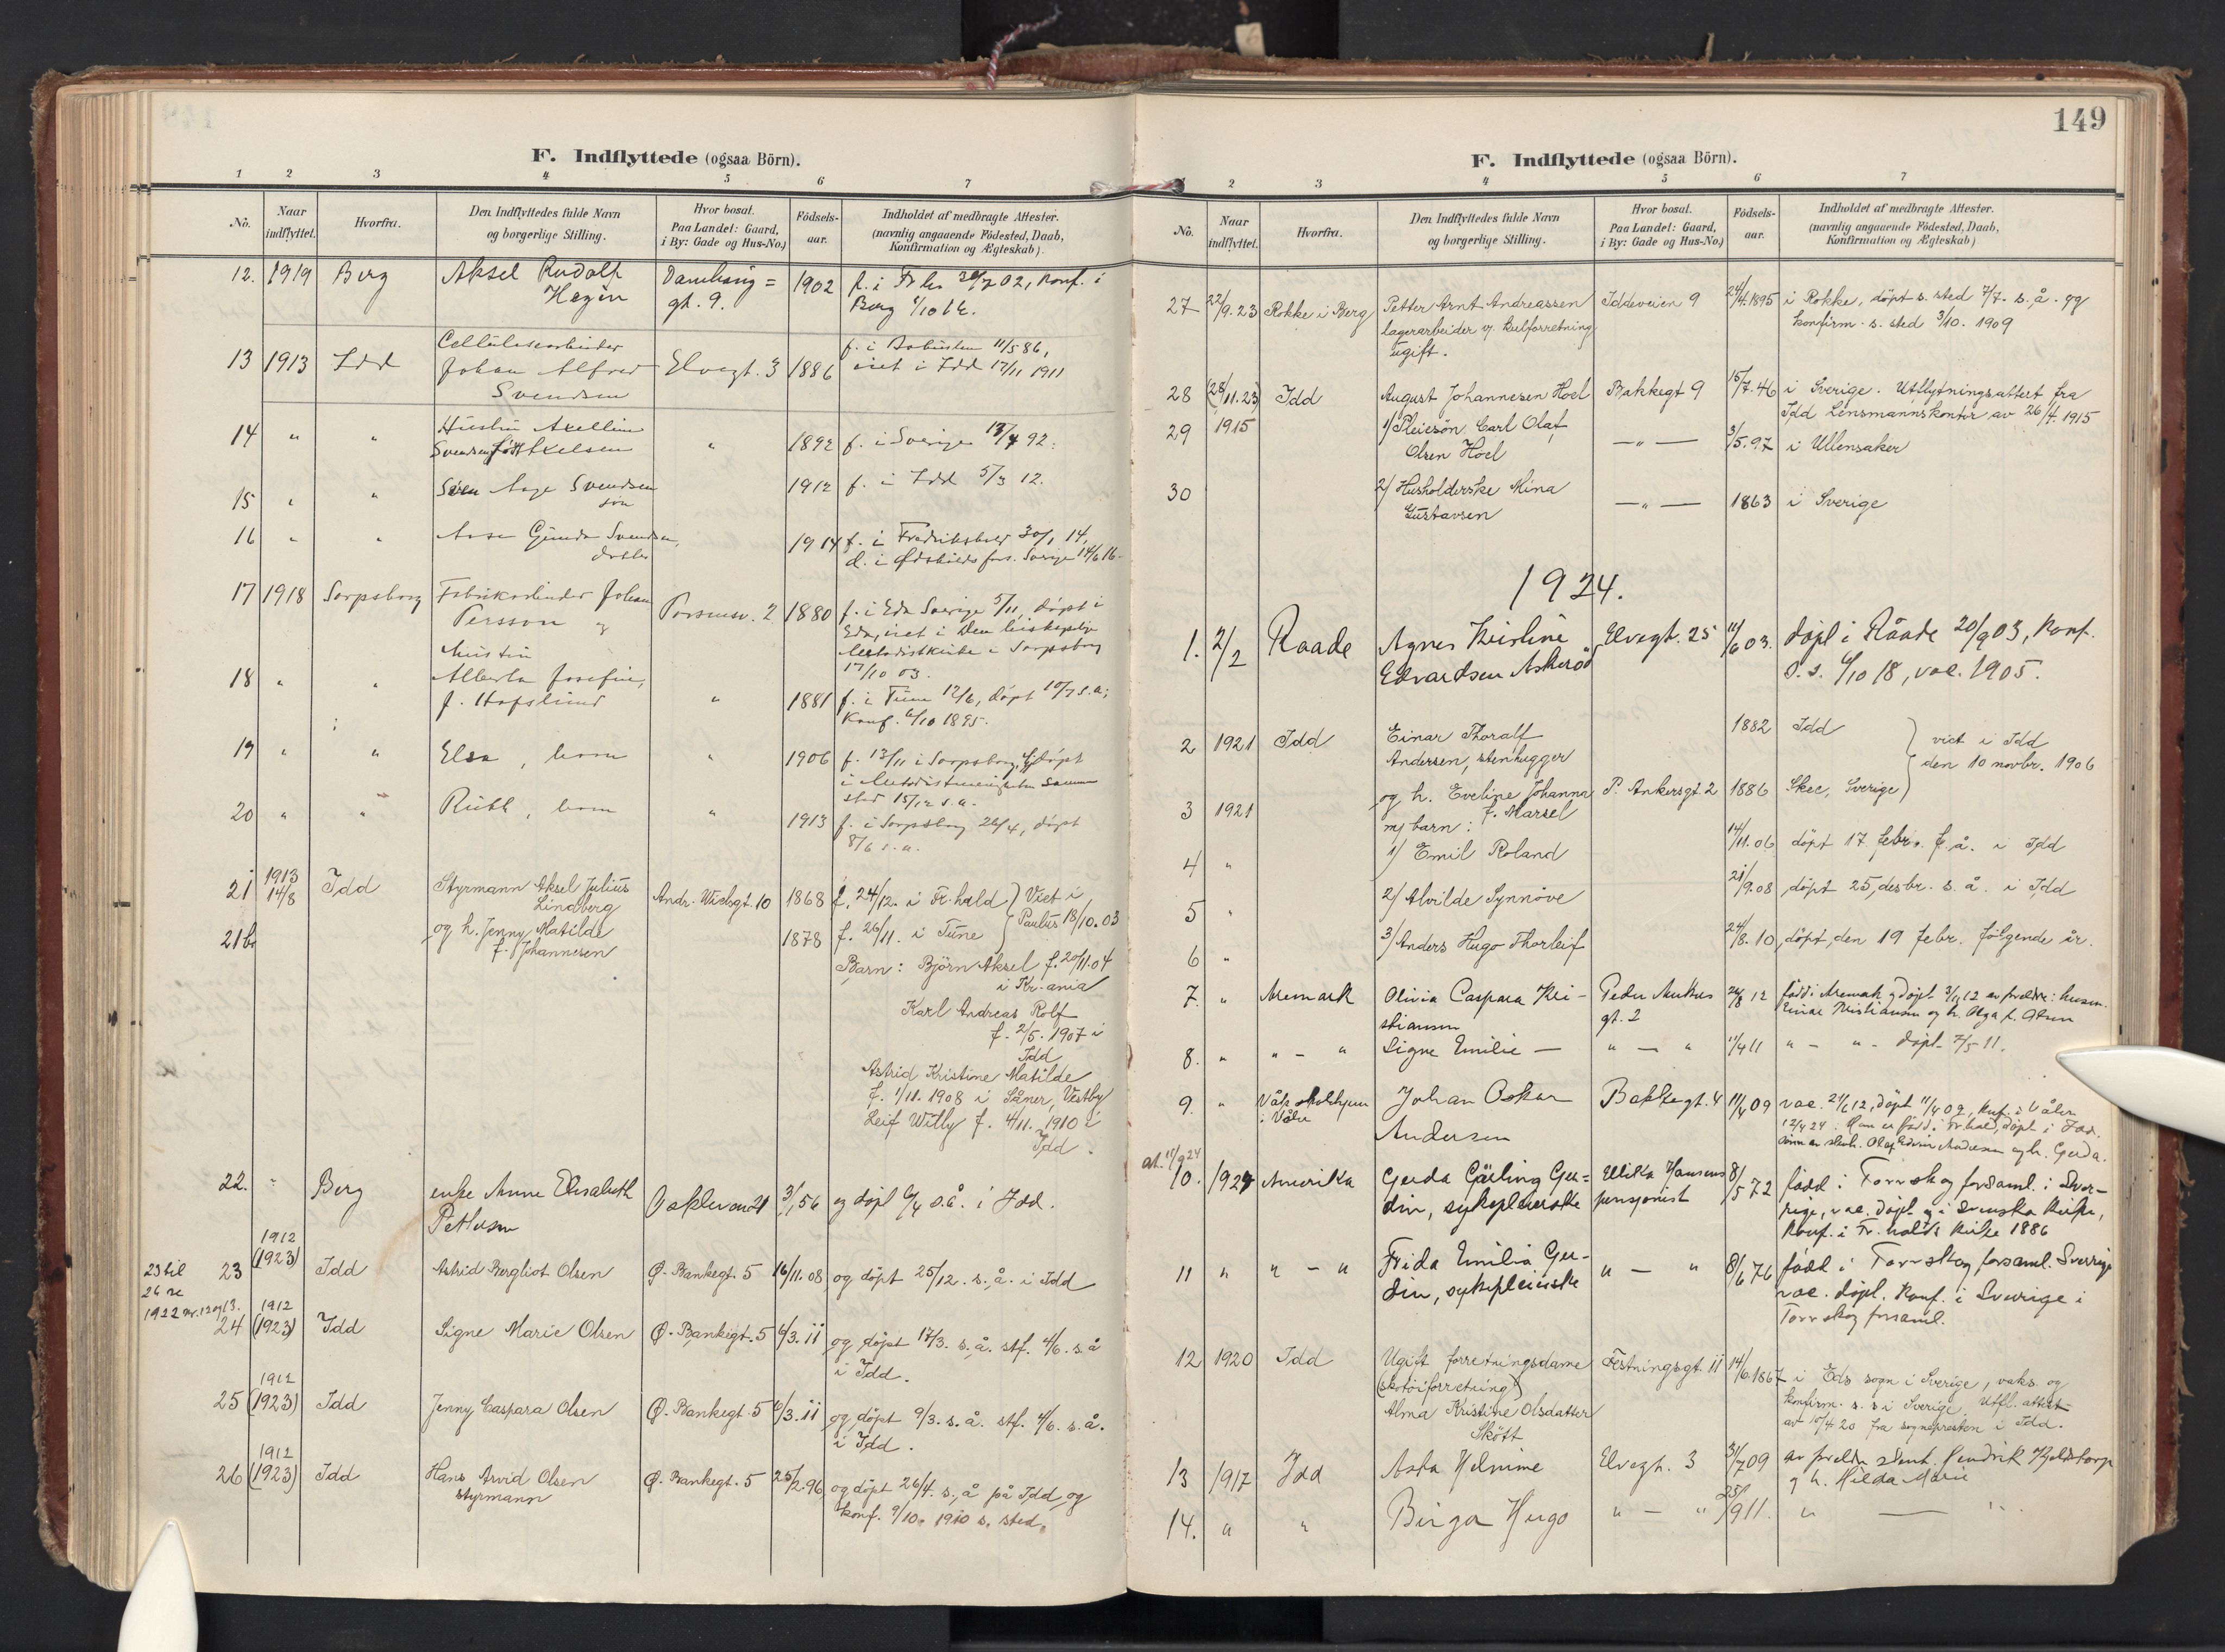 F. Indflyttede (ogsaa Börn).
1 2 3 4 5 6 7
No. Naar indflyttet. Hvorfra. Den Indflyttedes fulde Navn og borgerlige Stilling. Hvor bosat. Paa Landet: Gaard, i By: Gade og Hus-No.) Födsels-aar. Indholdet af medbragte Attester. (navnlig angaaende Födested, Daab, Konfirmation og Ægteskab).
12. 1919 Berg Aksel Rudolf 1902 f. i Fr.hs 02, konf. i
gt. 9. Berg
Cellulosearbeider f. i 11/5 86,
13 1913 Idd Johan Alfred Elvegt. 3 1886 viet i Idd 17/11 1911
Svendsen
Hustru Axelline
14 " " Svendsen född Axelsen " 1892 f. i Sverige 13/4 92.
15 " " Aage Svendsen 1912 f. i Idd 5/3 12.
søn
16 " " Aase Gunda Svendsen, 1914 f. i Fredrikshald 30/1 14,
datter d. i Sverige 14/6 16.
17 1918 Sarpsborg Fabrikarbeider Johan 2 1880 f. i Eda Sverige 5/11, døpt i
Persson og Eda, viet i Den biskopelige
Metodistkirke i Sarpsborg
Hustru 17/10 03.
18 " " Alberta Josefine,
f. Hafslund " 1881 f. i Tune 12/6, døpt 10/7 s.a;
Konf. 6/10 1895.
19 " " Elsa, barn " 1906 f. 13/11 i Sarpsborg, døpt
i Metodistmenigheten samme
sted 15/12 s.a.
20 " " Ruth, barn " 1913 f. i Sarpsborg 26/4, døpt
8/6 s.a.
21 1913 14/8 Idd Styrmann Aksel Julius Lindberg Andr. Wielsgt. 10 1868 f. 24/12. i Fr.hald } Viet i
21b og h. Jenny Matilde 1878 f. 26/11. i Tune } Paulus 18/10.03
f. Johannesen
Barn: Björn Aksel f. 20/11.04
i Kr.ania
Karl Andreas Rolf
f. 2/5. 1907 i
Idd
Astrid Kristine Matilde
f. 1/11. 1908 i Såner, Vestby
Leif Willy f. 4/11. 1910 i
Idd.
22. " Berg enke Anne Elisabeth 3/1 56 og døpt 6/4 s.å. i Idd.
1912
23 til 23 (1923) Idd Astrid Bergliot Olsen Ø. Bankegt. 5 16/11.08 og døpt 25/12. s.å. i Idd
26 se
1922 nr. 12 og 13. 1912
24 (1923) Idd Signe Marie Olsen Ø. Bankegt. 5 6/3.11 og døpt 17/3. s.å. stf. 4/6. s.å
i Idd.
1912
25 (1923) Idd Jenny Caspara Olsen Ø. Bankegt. 5 6/3.11 og døpt 9/3. s.å. stf. 4/6. s.å.
i Idd.
1912
26 (1923) Idd Hans Arvid Olsen Ø. Bankegt. 5 25/2.96 og døpt 26/4. s.å på Idd og
styrmann konf. 9/10. 1910 s. sted.
149
F. Indflyttede (ogsaa Börn).
1 2 3 4 5 6 7
No. Naar indflyttet. Hvorfra. Den Indflyttedes fulde Navn og borgerlige Stilling. Hvor bosat. Paa Landet: Gaard, i By: Gade og Hus-No.) Födsels-aar. Indholdet af medbragte Attester. (navnlig angaaende Födested, Daab, Konfirmation og Ægteskab)
27 22/9.23 Rokke i Berg Petter Arnt Andreassen Iddeveien 9 24/4.1895 i Rokke, døpt s. sted 7/7. s.å. og
lagerarbeider v/ kulforretning konfirm. s. sted 3/10. 1909
ugift.
28 (28/11.23) Idd August Johannesen Hoel Bakkegt 9 15/7.46 i Sverige. Utflytningsattest fra
Idd Lensmannskontor av 26/4. 1915
29 1915 1/ Pleiesön Carl Olaf — " — 3/5.97 i Ullensaker
Olsen Hoel
30 2/ Husholderske Mina — " — 1863 i Sverige
Gustavsen
1924.
1. 2/2 Raade Agnes Kristine Elvegt. 25 11/6 03. døpt i Råade 20/9 03, konf.
Edvardsen Askeröd s.s. 6/10 18, vac. 1905.
2 1921 Idd Einar Thoralf 1882 Idd } viet i Idd
Andersen, stenhugger } den 10 novbr. 1906
3 1921 og h. Eveline Johanna P. Ankersgt. 2 1886 Skee, Sverige }
f. Marsel
m/ barn:
4 " 1/ Emil Roland 14/11.06 døpt 17 febr. f.å. i Idd
5 " 2/ Alvilde Synnöve 21/9.08 døpt 25, desbr. s.å. i Idd
6 " 3/ Anders Hugo Thorleif 24/8.10, døpt, den 19 febr. följende år.
7. " Aremark Olivia Caspara Kri- Peder Ankers 26/8 12 född i Aremark og døpt 3/11 12 av foreldre: husm.
stiansen gt. 2 Einar Kristiansen og h. Olga f. Olsen
8. " " - " Signe Emilie — " — " 1/4 11 " - " - døpt 7/5 11.
9. " i Våler Johan Oskar Bakkegt. 4 11/4 09 vac. 21/6 12, døpt 11/4 09, Konf. i Våler
Andersen 12/4 24. Han er född i Fr.hald, døpt i Idd.
Olaf Edvin Andersen og h. Gerda.
at. 11/9 24
10. 1924 Amerika Gerda Ger- Hansens 8/5 72 född i Torrskog forsaml. i Sve-
din, sykepleierske pensjonist rige, vac. døpt og i svenska kirke,
konf. i Fr.halds kirke 1886
11 " " - " Frida Emilia Ger- " — " 8/6 76 född i Torrskog forsaml. Sverige
din, sykepleierske vac. døpt. Konf. i Sverige i
Torrskog forsaml.
12 1920 Idd Ugift forretningsdame Festningsgt. 11 14/6.1867 i Eds sogn i Sverige, vaks. og
(skotöiforretning) konfirm. s. s i Sverige. Utfl. attest
Alma Kristine Olsdatter av 10/4 20 fra sognepresten i Idd.
Skött
13 1917 Idd Asta Helmine Elvegt. 3 31/7 09 av foreldre stenh. Hendrik Kjeldstorp
og h. Hilda Marie
14. " " Birger Hugo " — " 25/9 11. " —